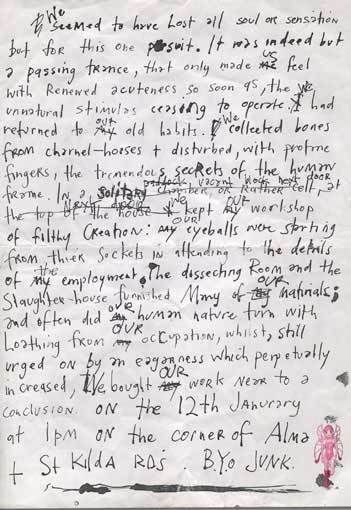 We
seemed to have Lost all soul or sensation
but for this one pursuit. It was indeed but
a passing trance, that only made us feel
with Renewed acuteness so soon as, the
unnatural stimulus ceasing to operate, We had
returned to our old habits. We collected bones
from charnel-houses + disturbed, with profane
fingers, the tremendous secrets of the human
frame. In a
paddock, vacant block next door
solitary chamber, OR Rather cell, at
the top of the house We kept OUR workshop
of filthy Creation: eyeballs were starting
from their sockets in attending to the details
of the employment. The dissecting Room and the
Slaughter-house furnished Many of OUR materials;
and often did OUR human nature turn with
Loathing from OUR occupation, whilst, still
urged on by an eagerness which perpetually
increased, We bought OUR work near to a
conclusion. ON the 12th Janurary
at 1pm ON the corner of Alma
+ St Kilda RDs. B.Y.O JUNK.